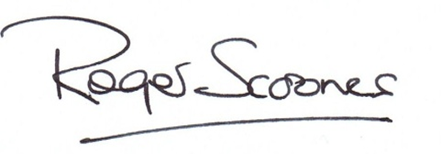 Roger Scoones